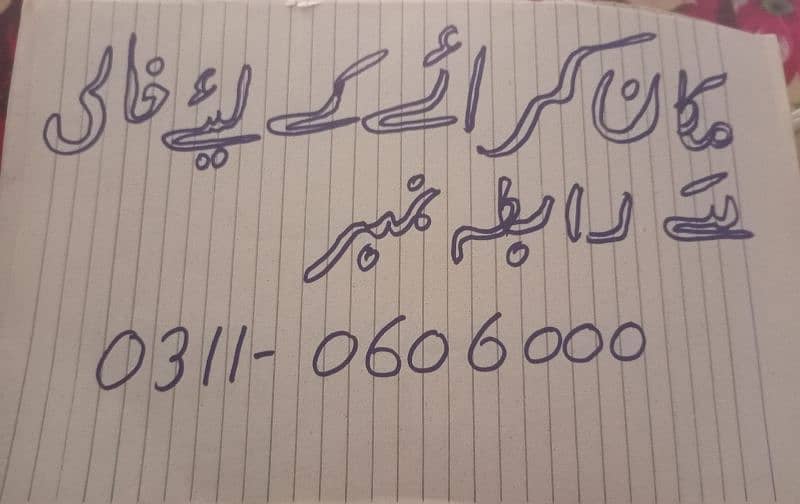 مکان کرائے کے لیئے خالی
ہے رابطہ نمبر
0311-0606000